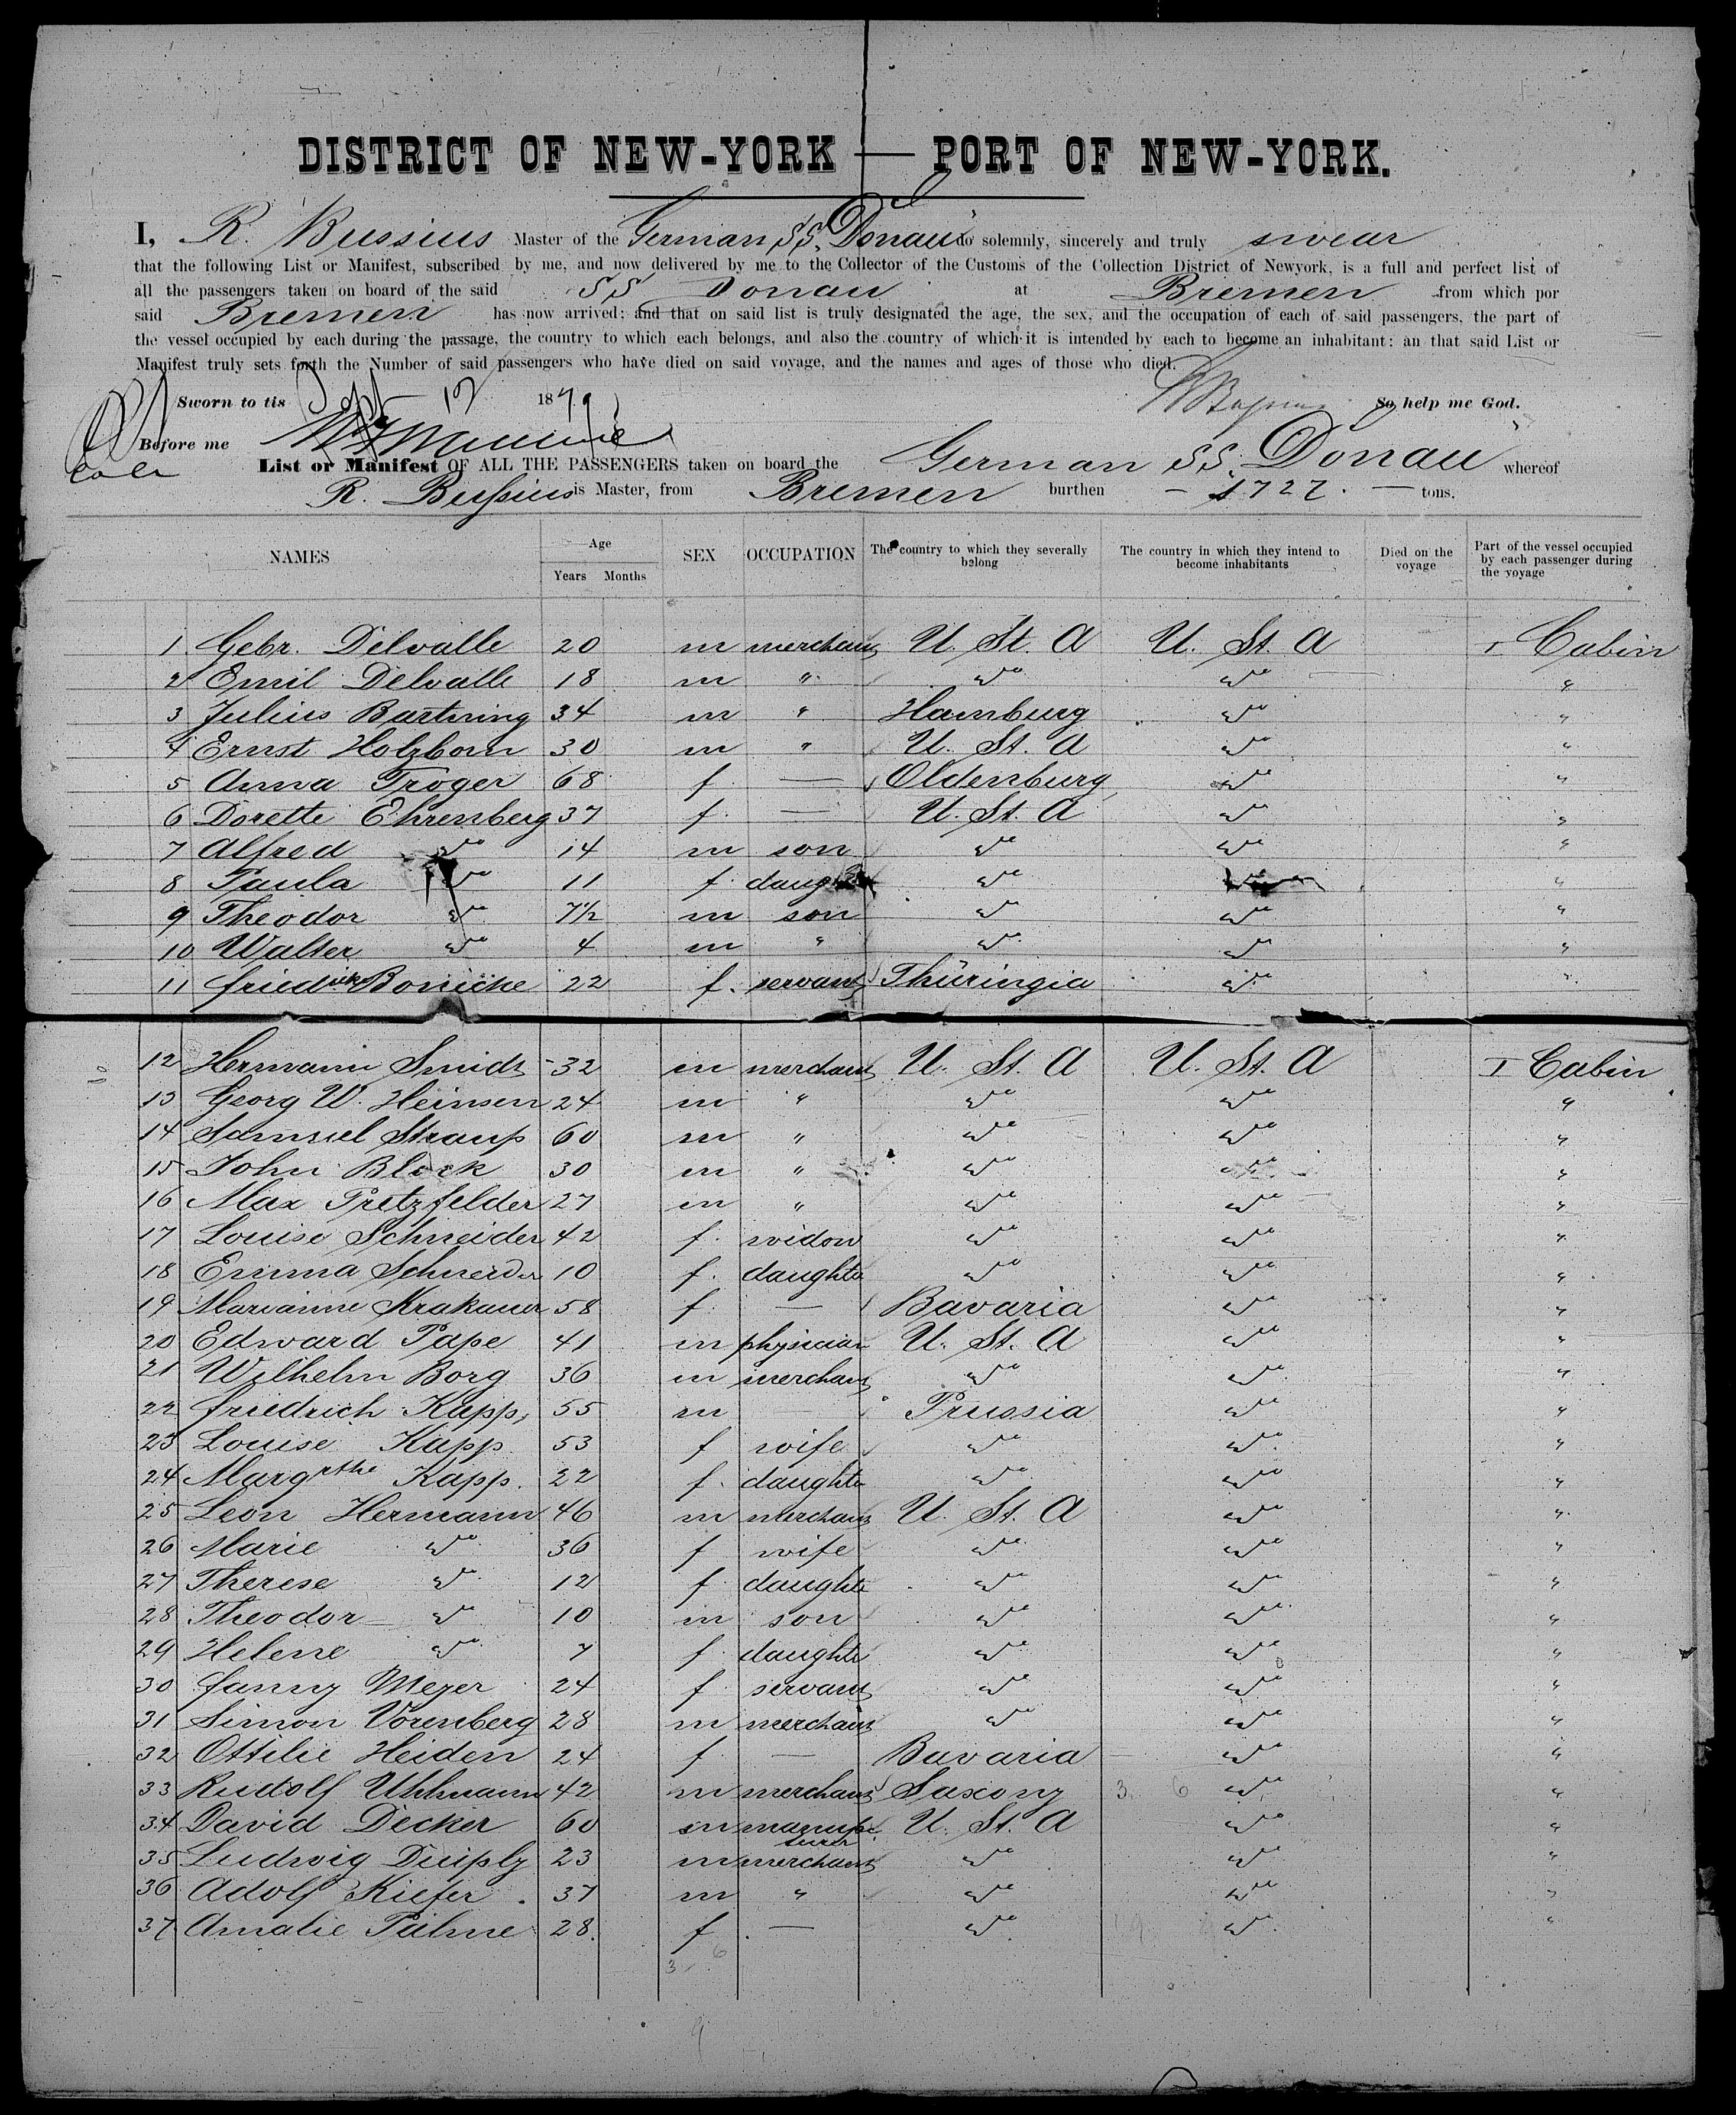 DISTRICT OF NEW-YORK — PORT OF NEW-YORK.
I, R. Bussius Master of the German SS. Donau do solemnly, sincerely and truly swear
that the following List or Manifest, subscribed by me, and now delivered by me to the Collector of the Customs of the Collection District of Newyork, is a full and perfect list of
all the passengers taken on board of the said SS Donau at Bremen from which por
said Bremen has now arrived; and that on said list is truly designated the age, the sex, and the occupation of each of said passengers, the part of
the vessel occupied by each during the passage, the country to which each belongs, and also the country of which it is intended by each to become an inhabitant: an that said List or
Manifest truly sets forth the Number of said passengers who have died on said voyage, and the names and ages of those who died.
Sworn to tis Sept 12 1879 So help me God.
Before me
List or Manifest OF ALL THE PASSENGERS taken on board the German SS. Donau whereof
R. Bussius is Master, from Bremen burthen — 1727. — tons.
NAMES Age Years Months SEX OCCUPATION The country to which they severally belong The country in which they intend to become inhabitants Died on the voyage Part of the vessel occupied by each passenger during the voyage
1 Gebr. Delvalle 20 m merchant U. St. A U. St. A I Cabin
2 Emil Delvalle 18 m " do do "
3 Julius Bartning 34 m " Hamburg do "
4 Ernst Holzborn 30 m " U. St. A do "
5 Anna Troger 68 f. — Oldenburg do "
6 Dorette Ehrenberg 37 f. — U. St. A do "
7 Alfred do 14 m son do do "
8 Paula do 11 f. daugh do do "
9 Theodor do 7½ m son do do "
10 Walter do 4 m " do do "
11 Friedrike Bonicke 22 f. servant Thüringia do "
12 Hermann Smidt 32 m merchant U. St. A U. St. A I Cabin
13 Georg W. Heinsen 24 m " do do "
14 Samuel Straup 60 m " do do "
15 John Block 30 m " do do "
16 Max Pretzfelder 27 m " do do "
17 Louise Schneider 42 f. widow do do "
18 Emma Schneider 10 f. daughte do do "
19 Marianne Krakauer 58 f. — Bavaria do "
20 Edward Pape 41 m physician U. St. A do "
21 Wilhelm Borg 36 m merchant do do "
22 Friedrich Kapp, 55 m — Prussia do "
23 Louise Kapp 53 f wife do do "
24 Margrethe Kapp. 22 f. daughte do do "
25 Leon Hermann 46 m merchant U. St. A do "
26 Marie do 36 f wife do do "
27 Therese do 12 f. daughte do do "
28 Theodor do 10 m son do do "
29 Helene do 7 f. daughte do do "
30 Fanny Meyer 24 f. servant do do "
31 Simon Vorenberg 28 m merchant do do "
32 Ottilie Heiden 24 f. — Bavaria do "
33 Rudolf Uhlmann 42 m merchant Saxony do "
34 David Decker 60 m manufac turer U. St. A do "
35 Ludwig 23 m merchant do do "
36 Adolf Kiefer 37 m " do do "
37 Amalie Palme 28. f — do do "